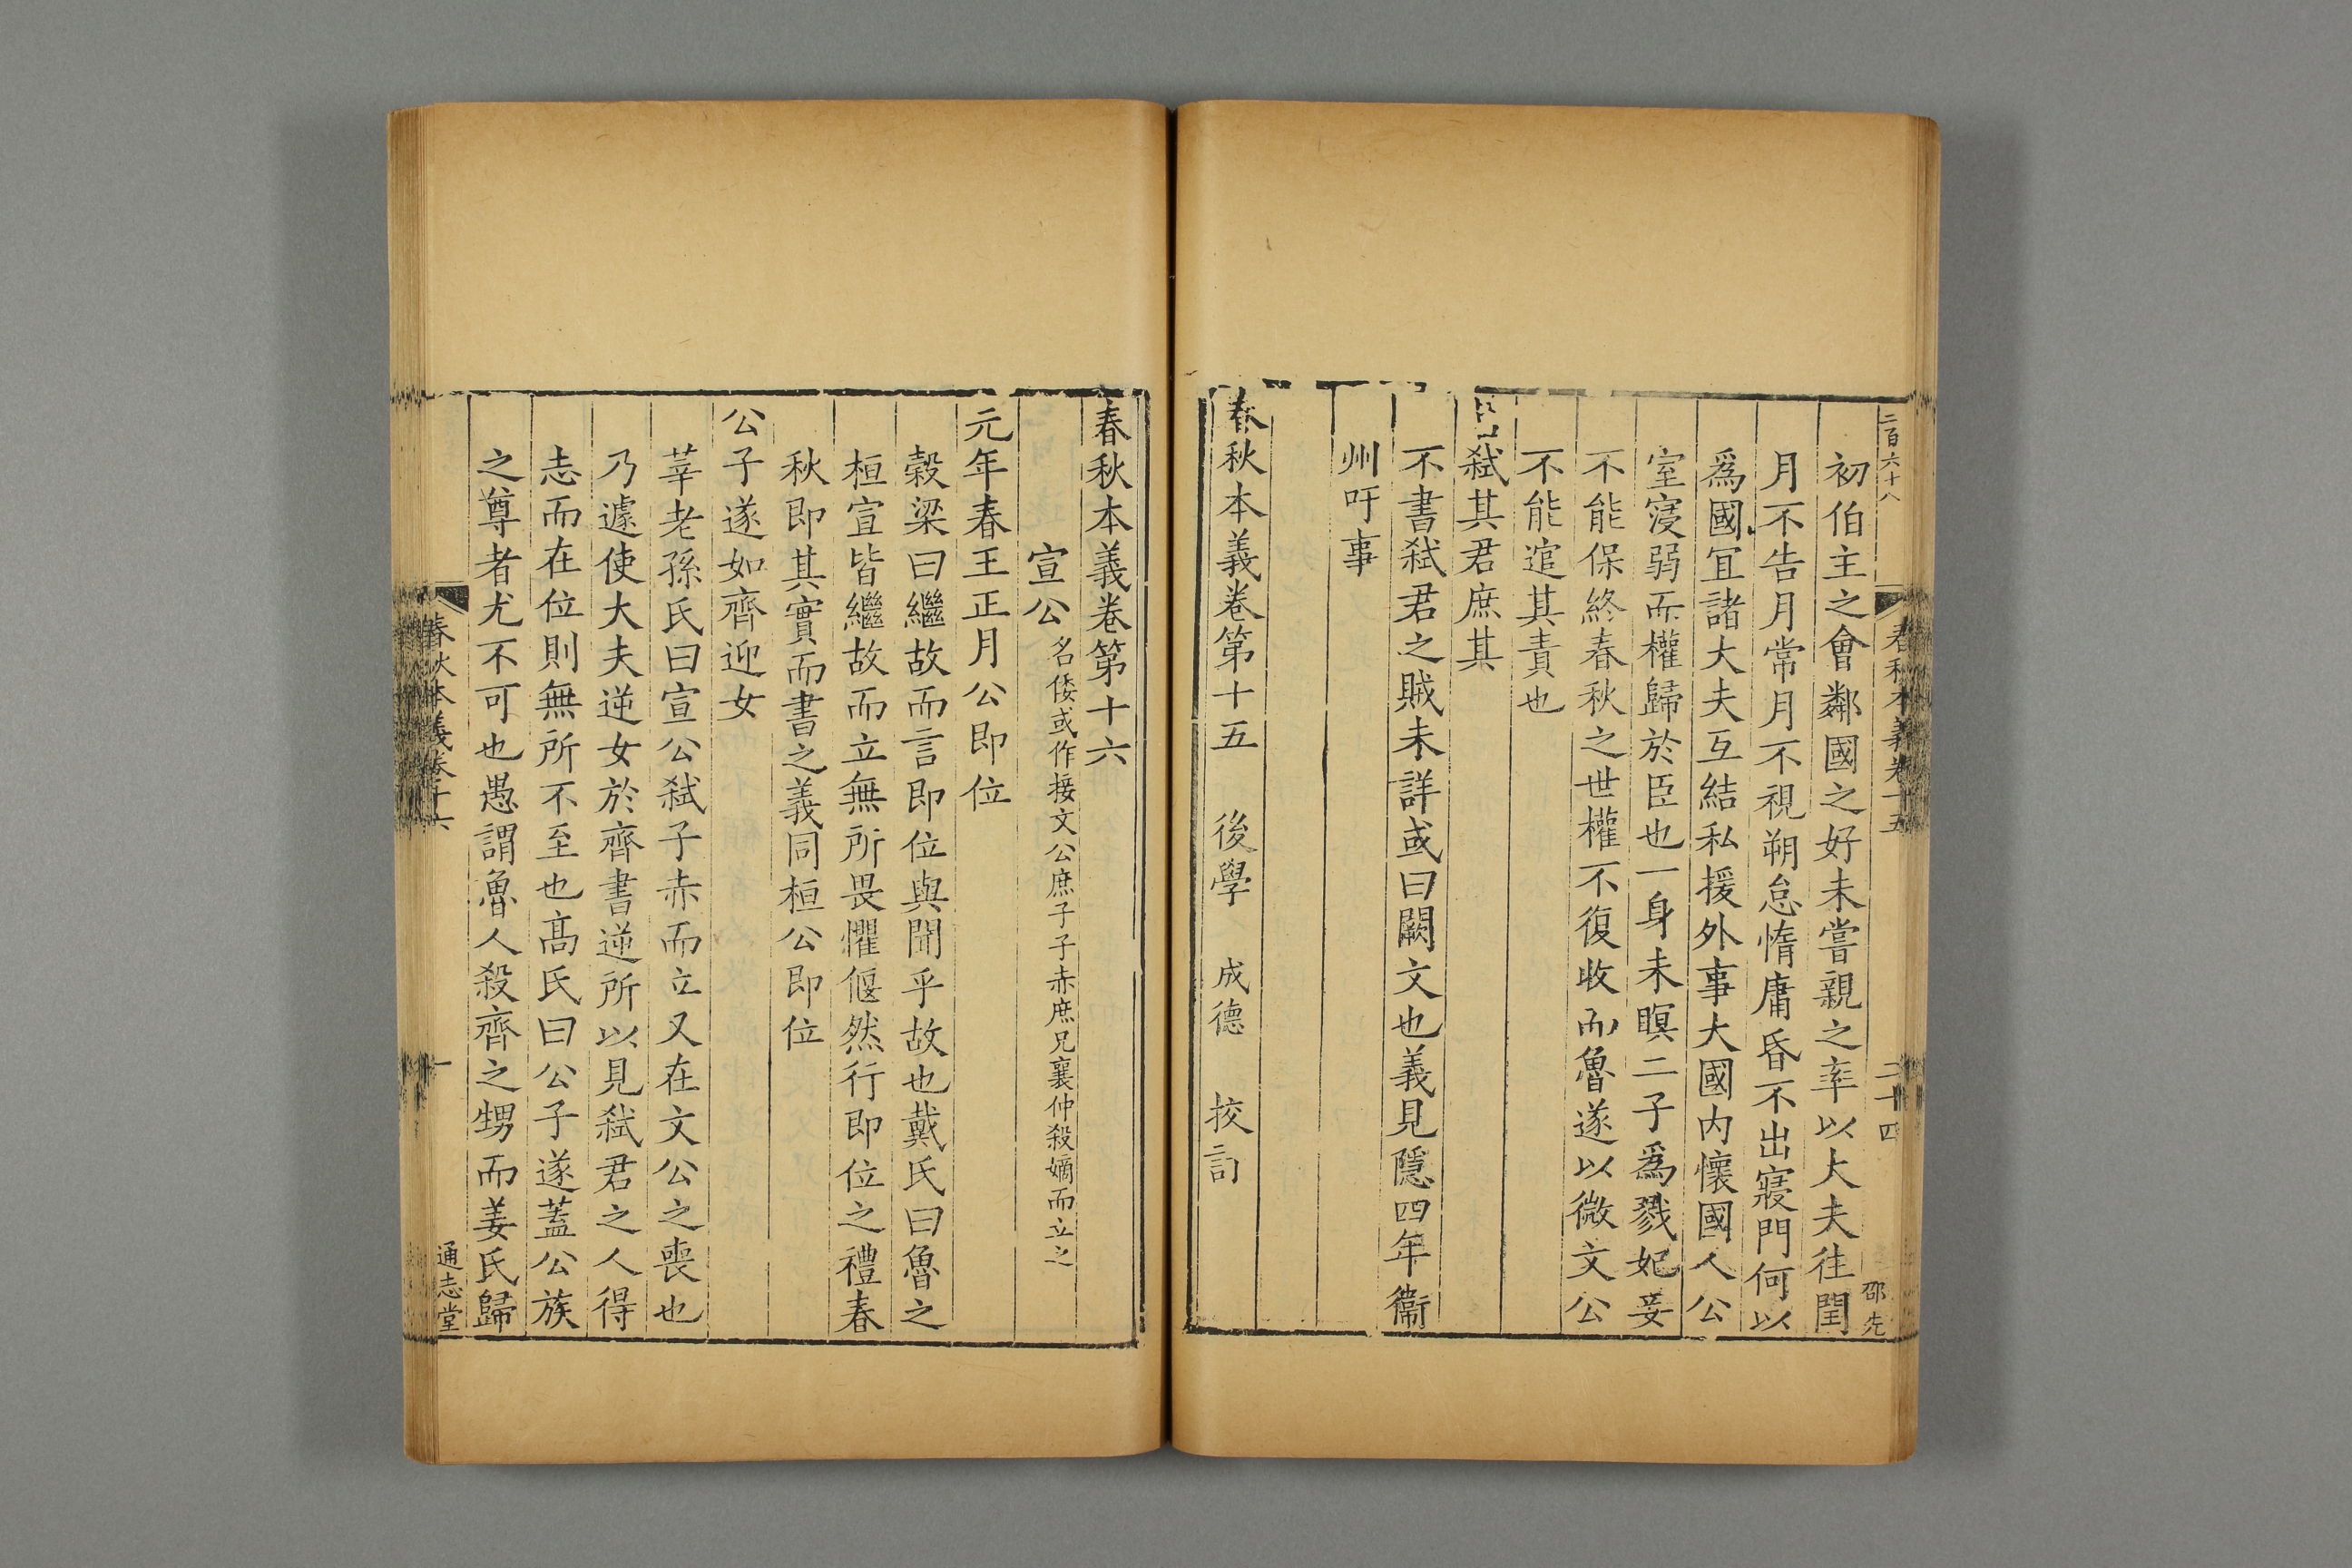 二百六十八
春秋本義卷十五
二十四
邵先
初伯主之會鄰國之好未嘗親之率以大夫往閏
月不告月常月不視朔怠惰庸昏不出寢門何以
爲國宜諸大夫互結私援外事大國内懷國人公
室寖弱而權歸於臣也一身未瞑二子爲戮妃妾
不能保終春秋之世權不復收而魯遂以微文公
不能逭其責也
弑其君庶其
不書弑君之賊未詳或曰闕文也義見隱四年衞
州吁事
春秋本義卷第十五 後學 成德 挍訂
春秋本義卷第十六
宣公 名倭或作接文公庶子子赤庶兄襄仲殺嫡而立之
元年春王正月公即位
榖梁曰繼故而言即位與聞乎故也戴氏曰魯之
桓宣皆繼故而立無所畏懼偃然行即位之禮春
秋即其實而書之義同桓公即位
公子遂如齊迎女
莘老孫氏曰宣公弑子赤而立又在文公之喪也
乃遽使大夫逆女於齊書逆所以見弑君之人得
志而在位則無所不至也髙氏曰公子遂蓋公族
之尊者尤不可也愚謂魯人殺齊之甥而姜氏歸
春秋本義卷十六
一
通志堂